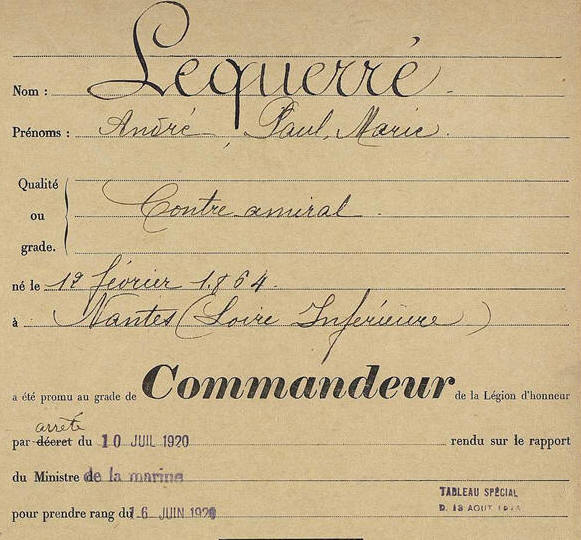 Nom : Lequerré
Prénoms : André, Paul, Marie.
Qualité
ou Contre-amiral.
grade.
né le 12 février 1864.
à Nantes (Loire Inférieure)
a été promu au grade de Commandeur de la Légion d'honneur
arrêté
par décret du 10 JUIL 1920 rendu sur le rapport
du Ministre de la marine
TABLEAU SPÉCIAL
D. 13 AOUT
pour prendre rang du 16 JUIN 1920